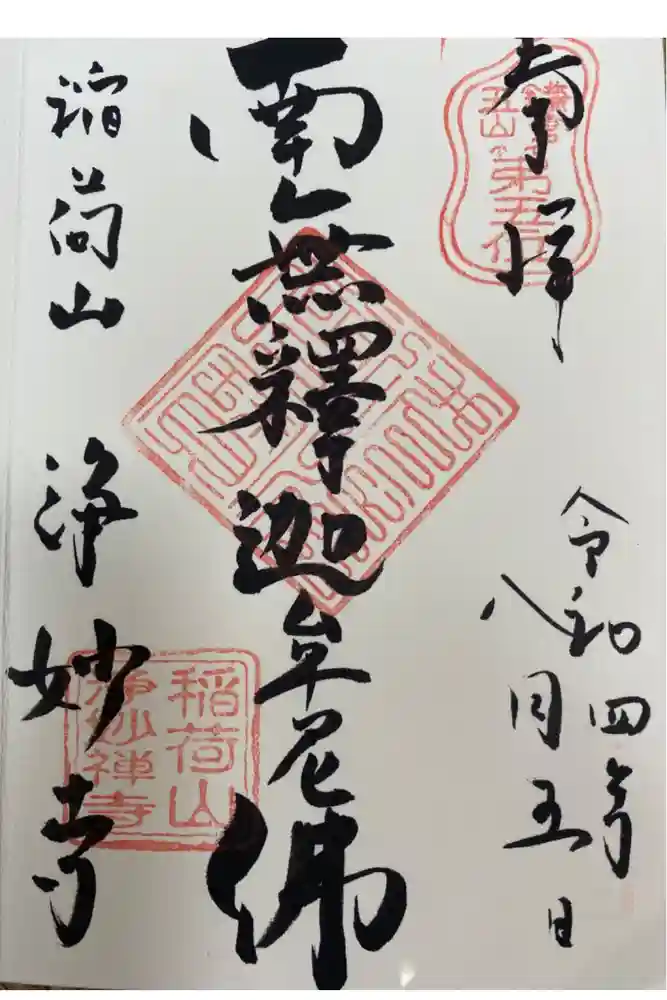 奉拝
鎌倉
五山
第五位
令和四年
八月五日
南無釋迦牟尼佛
稲荷山
浄妙寺
稲荷山
浄妙禅寺